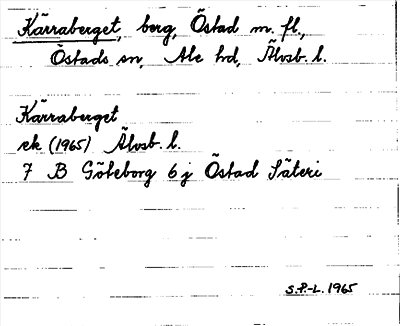 Kärraberget, berg, Östad m. fl.,
Östads sn, Ale hd, Älvsb. l.
Kärraberget
ek (1965) Älvsb. l.
7 B Göteborg 6 j Östad Säteri
S.P.-L. 1965